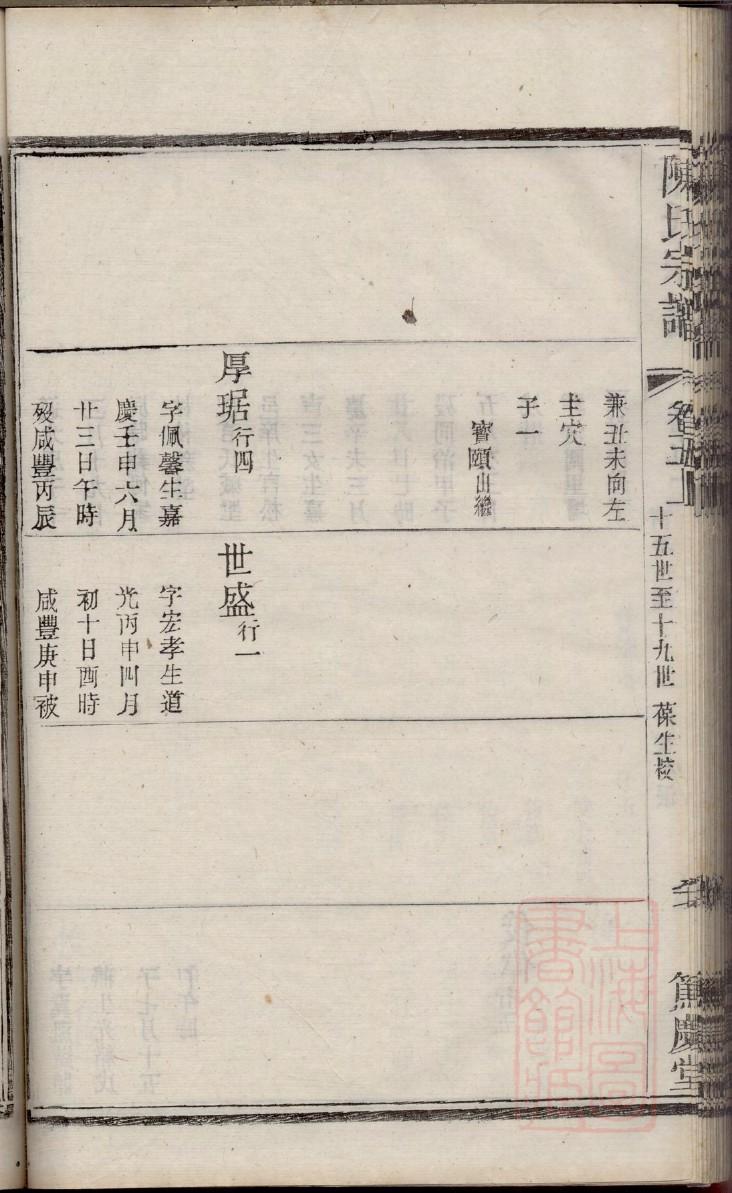 陳氏宗譜
卷五
十五世至十九世 葆生校
篤慶堂
兼丑未向左
主穴
子一
寶頤出繼
厚琚行四
字佩馨生嘉
慶壬申六月
廿三日午時
歿咸豐丙辰
世盛行一
字宏孝生道
光丙申四月
初十日酉時
咸豐庚申被
上海圖書館藏